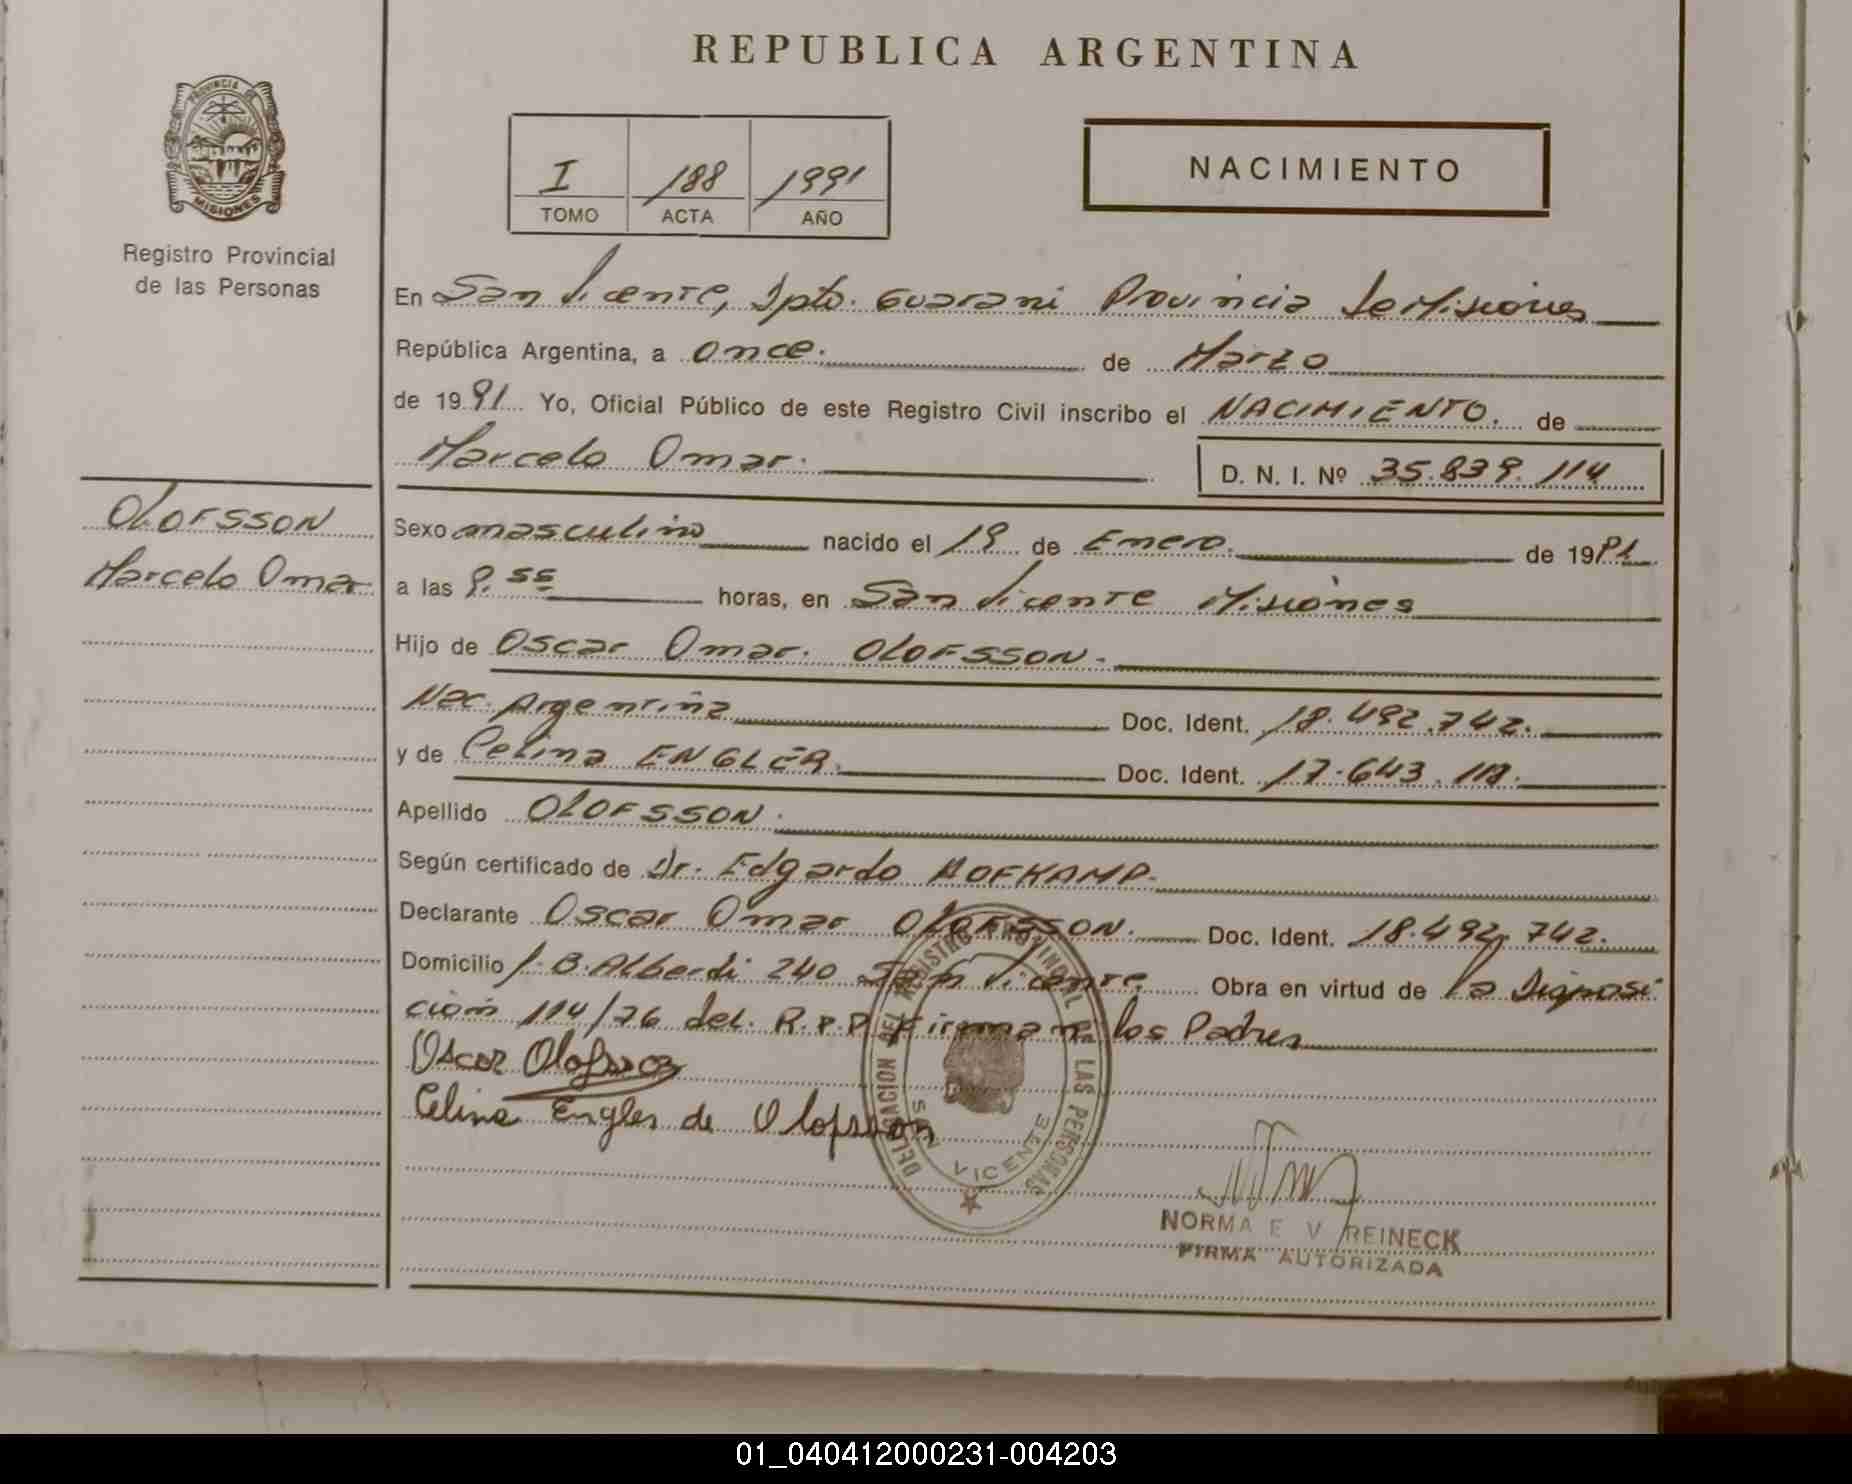 REPUBLICA ARGENTINA
PROVINCIA DE
MISIONES
Registro Provincial
de las Personas
I 188 1991
TOMO ACTA AÑO
NACIMIENTO
En San Vicente, Dpto. Guarani Provincia de Misiones
República Argentina, a once. de Marzo
de 1991 Yo, Oficial Público de este Registro Civil inscribo el NACIMIENTO. de
Marcelo Omar. D. N. I. Nº 35.839.114
OLOFSSON
Marcelo Omar
Sexo masculino nacido el 19 de Enero. de 19
a las 9.55 horas, en San Vicente Misiones
Hijo de Oscar Omar. OLOFSSON.
Nac. Argentina Doc. Ident. 18.492.742.
y de Celina ENGLER. Doc. Ident. 17.643.
Apellido OLOFSSON.
Según certificado de Dr. Edgardo HOFKAMP.
Declarante Oscar Omar OLOFSSON. Doc. Ident. 18.492.742.
Domicilio J.B.Alberdi 240 San Vicente. Obra en virtud de la Disposi
ción 114/76 del. R.P.P. Firman los Padres
Oscar Olofsson
Celina Engler de Olofsson
DELEGACION DEL REGISTRO PROVINCIAL DE LAS PERSONAS
SAN VICENTE
NORMA E V REINECK
FIRMA AUTORIZADA
01_040412000231-004203